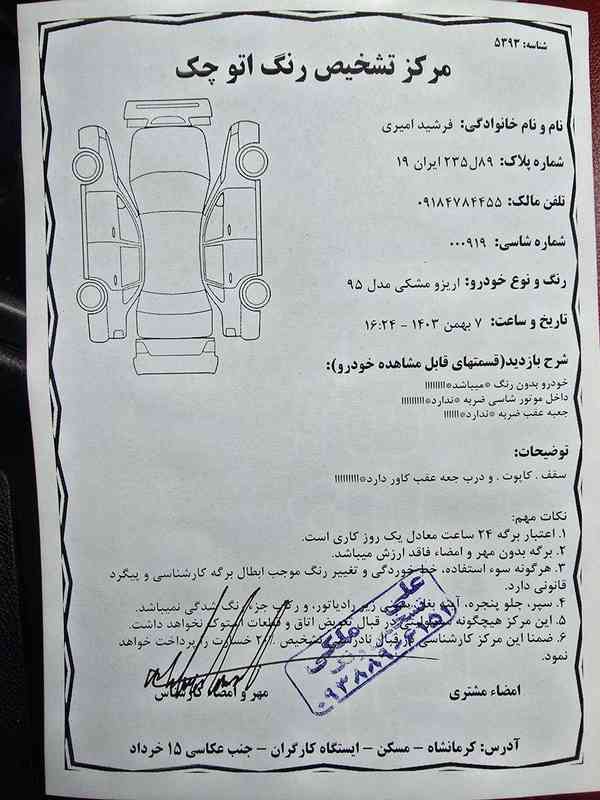 شناسه: ۵۳۹۳
مرکز تشخیص رنگ اتو چک
نام و نام خانوادگی: فرشید امیری
شماره پلاک: ۸۹ل۲۳۵ ایران ۱۹
تلفن مالک: ۰۹۱۸۴۷۸۴۴۵۵
شماره شاسی: ۰۰۰۹۱۹
رنگ و نوع خودرو: اریزو مشکی مدل ۹۵
تاریخ و ساعت: ۷ بهمن ۱۴۰۳ - ۱۶:۲۴
شرح بازدید(قسمتهای قابل مشاهده خودرو):
خودرو بدون رنگ *میباشد*!!!!!!!!!
داخل موتور شاسی ضربه *ندارد*!!!!!!!!!
جعبه عقب ضربه *ندارد*!!!!!!
توضیحات:
سقف . کاپوت . و درب جعه عقب کاور دارد*!!!!!!!!!
نکات مهم:
۱. اعتبار برگه ۲۴ ساعت معادل یک روز کاری است.
۲. برگه بدون مهر و امضاء فاقد ارزش میباشد.
۳. هرگونه سوء استفاده، خط خوردگی و تغییر رنگ موجب ابطال برگه کارشناسی و پیگرد
قانونی دارد.
۴. سپر، جلو پنجره، آینه بغل، زیر رادیاتور، و رکاب جزء رنگ شدگی نمیباشد.
۵. این مرکز هیچگونه در قبال تعویض اتاق و قطعات استوک نخواهد داشت.
۶. ضمنا این مرکز کارشناسی در قبال تشخیص خسارت را پرداخت خواهد
نمود.
علی ملکی
امضاء مشتری
مهر و امضاء کارشناس
آدرس: کرمانشاه - مسکن - ایستگاه کارگران - جنب عکاسی ۱۵ خرداد